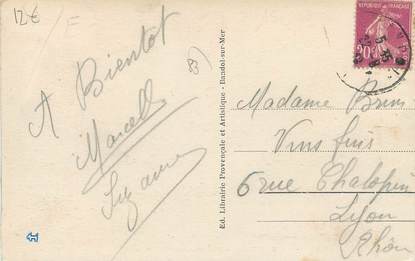 12€
A Bientot
Marcelle
Suzanne
Ed. Librairie Provençale et Artistique - Bandol-sur-Mer
REPUBLIQUE FRANÇAISE
20c
Madame Brun
Vins fins
6 rue Chalopin
Lyon
Rhône